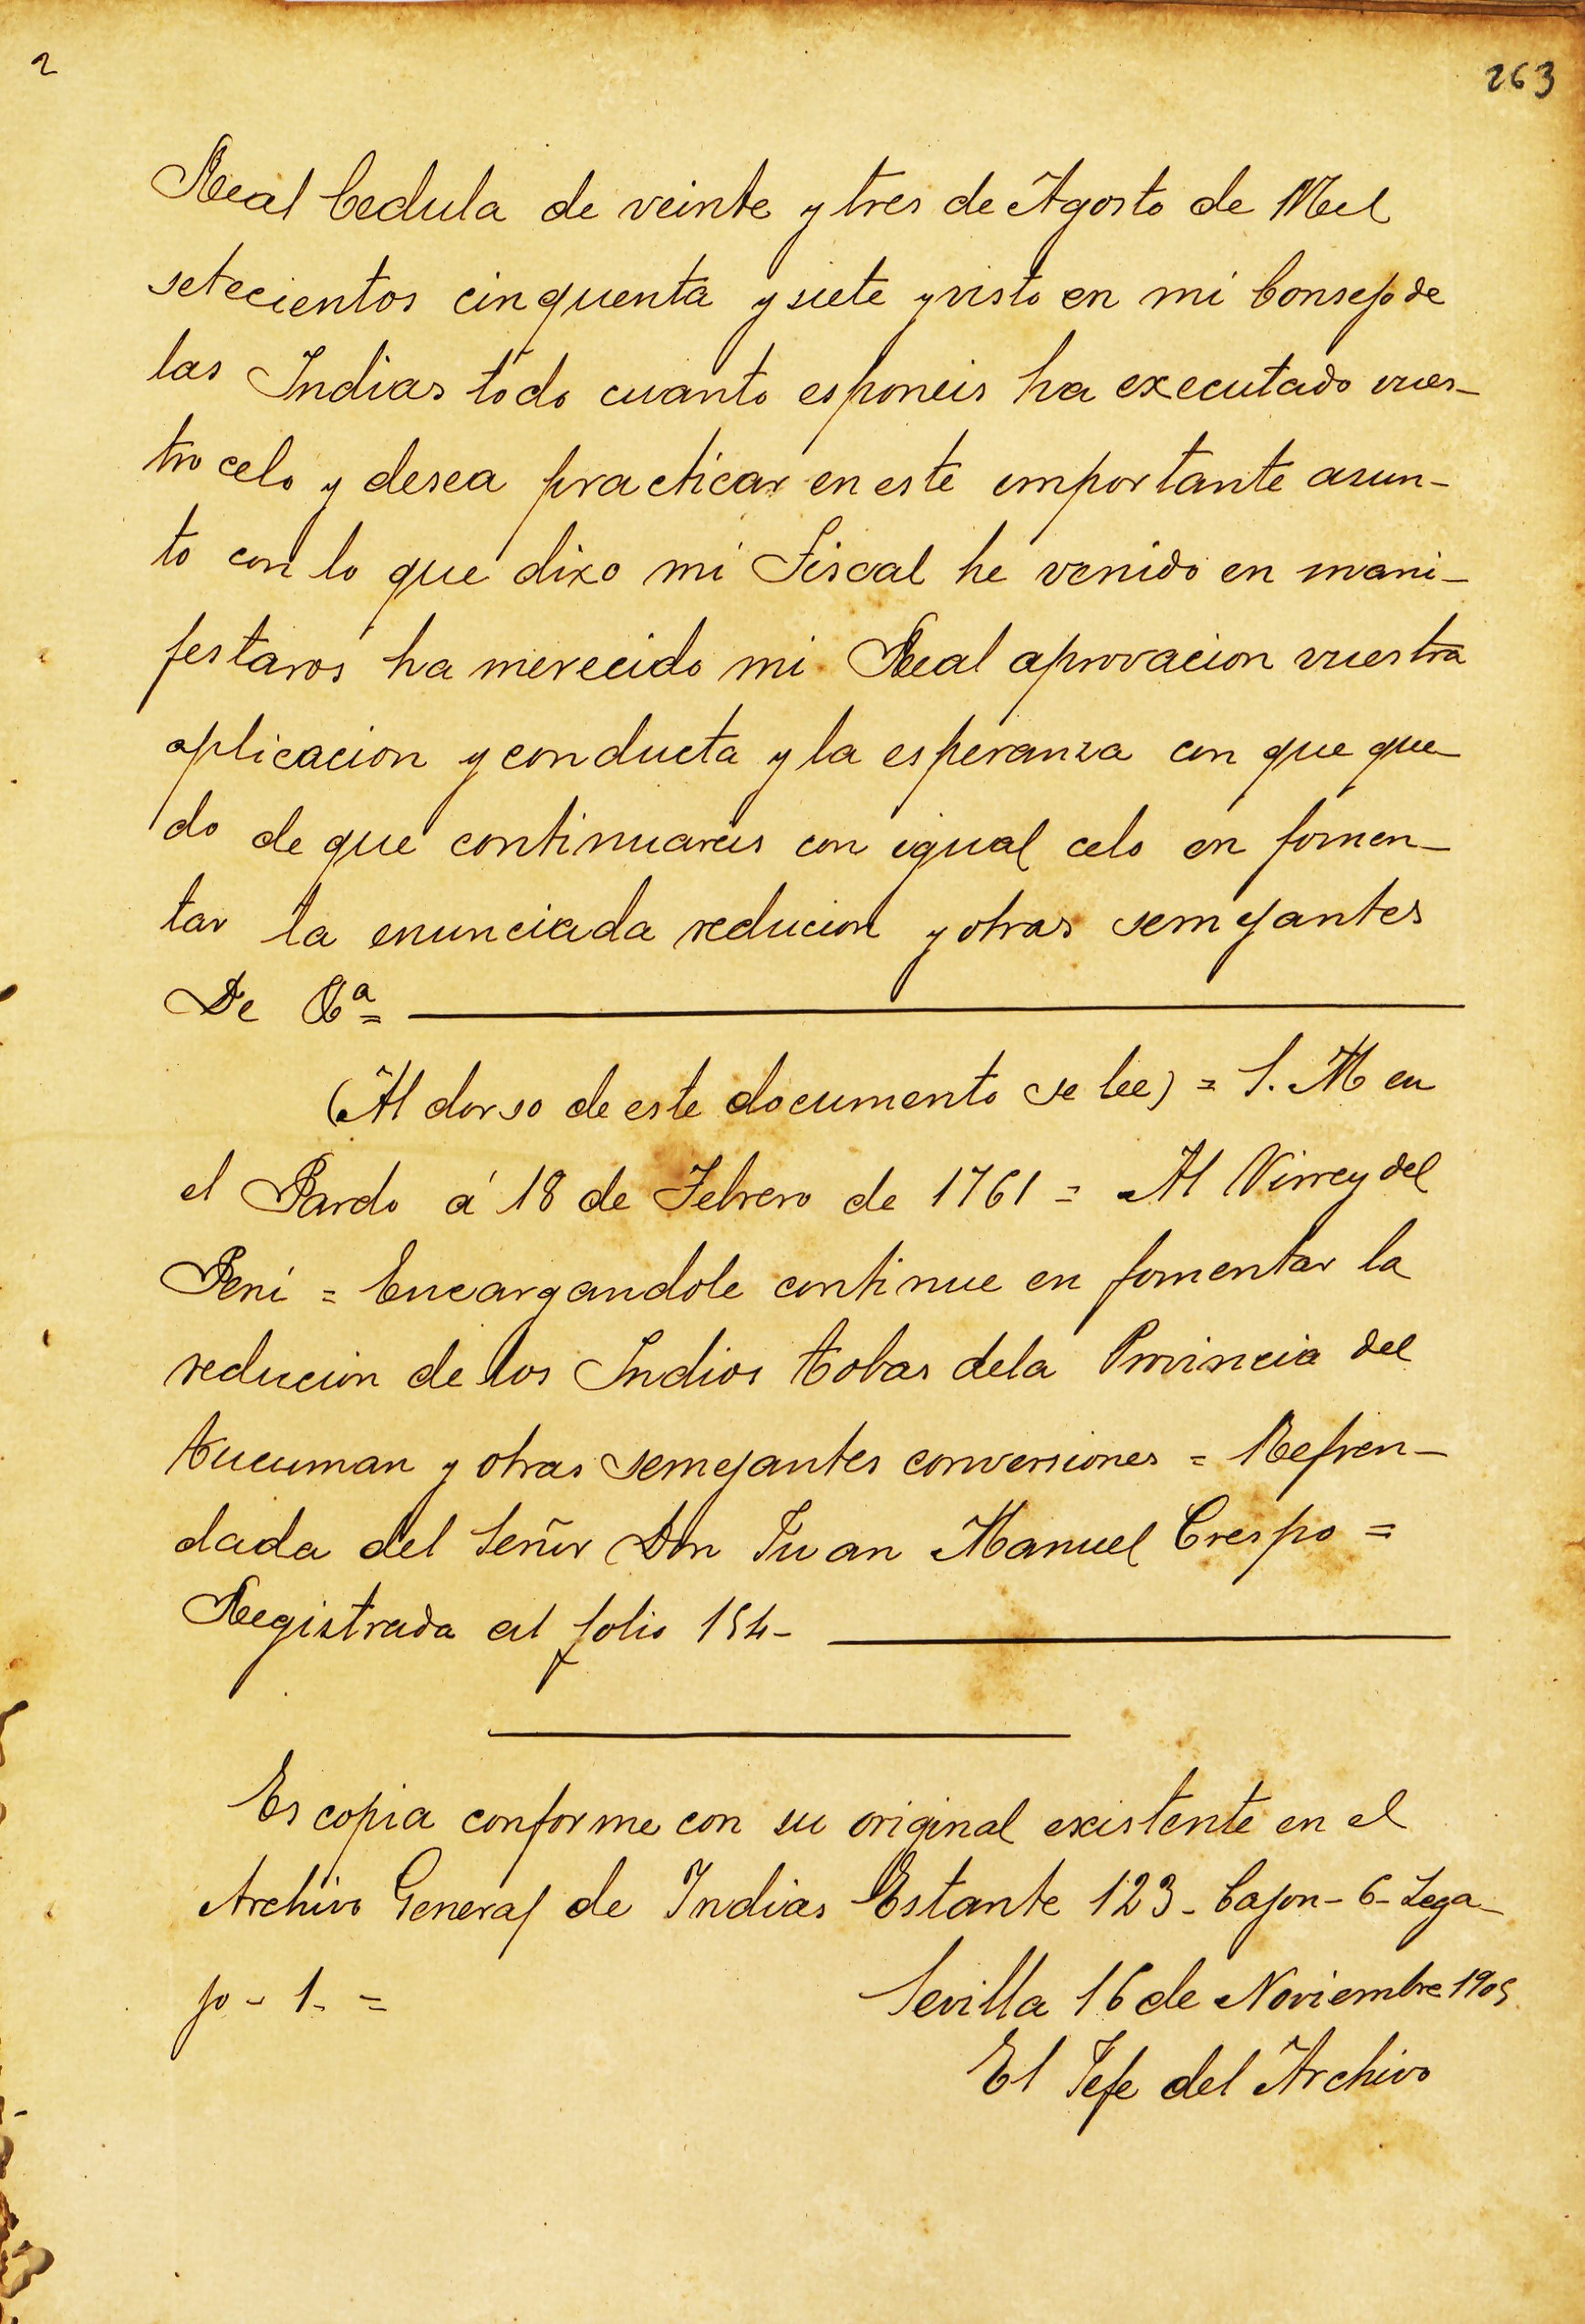 2
263
Real Cedula de veinte y tres de Agosto de Mil
setecientos cinquenta y siete y visto en mi Consejo de
las Indias todo cuanto esponeis ha executado vues-
tro celo y desea practicar en este importante asun-
to con lo que dixo mi Fiscal he venido en mani-
festaros ha merecido mi Real aprovacion vuestra
aplicacion y conducta y la esperanza con que que-
do de que continuareis con igual celo en fomen-
tar la enunciada reducion y otras semejantes
De
(Al dorso de este documento se lee) = S. M en
el Pardo á 18 de Febrero de 1761 = Al Virrey del
Perú = Encargandole continue en fomentar la
reducion de los Indios Tobas dela Provincia del
Tucuman y otras semejantes conversiones = Refren-
dada del Señor Don Juan Manuel Crespo =
Registrada al folio 154-
Es copia conforme con su original existente en el
Archivo General de Indias Estante 123 - Cajon - 6 - Lega-
jo - 1. =
Sevilla 16 de Noviembre 1905
El Jefe del Archivo